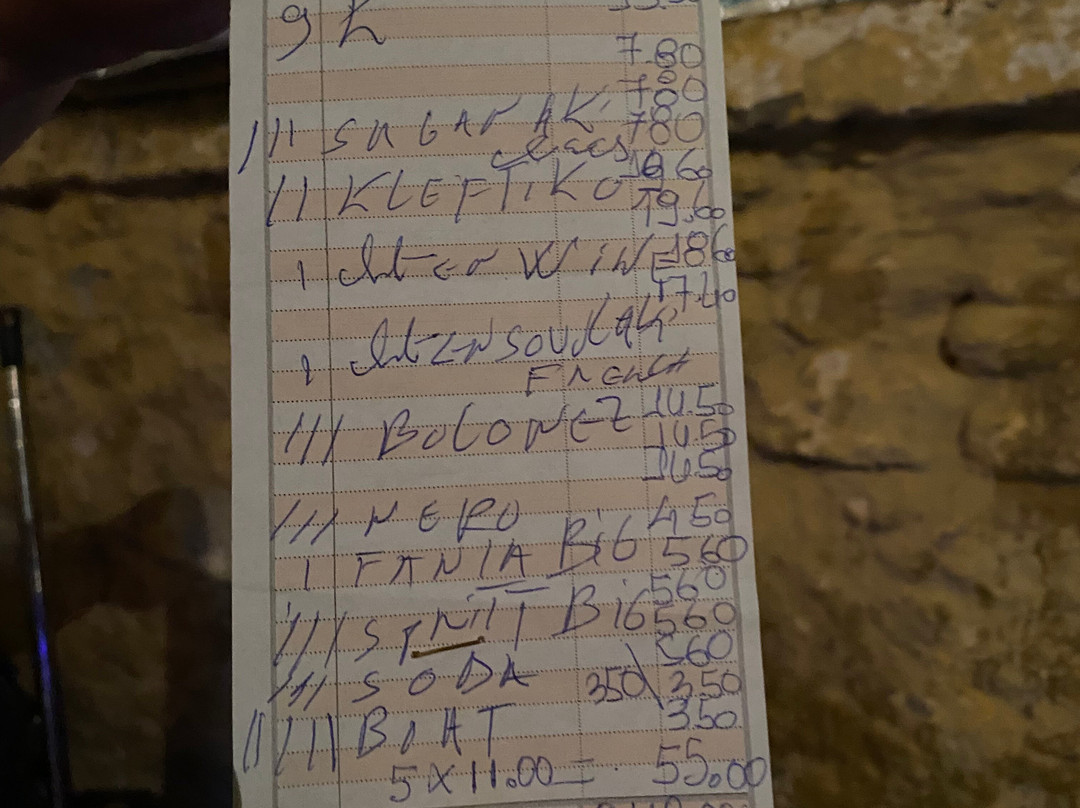 9 K
7.80
780
/// SAGANAKI 780
// KLEFTIKO 19.60
19.60
1 WINE 1860
17.40
1 SOUVLAKI
FRENCH
/// BOLONEZ 14.50
14.50
14.50
/// NERO 4.50
1 FANTA BiG 560
560
/// SPRiTT BiG 560
560
/// SODA 350 \ 350
350
BOAT
5 X 11.00 = 55.00